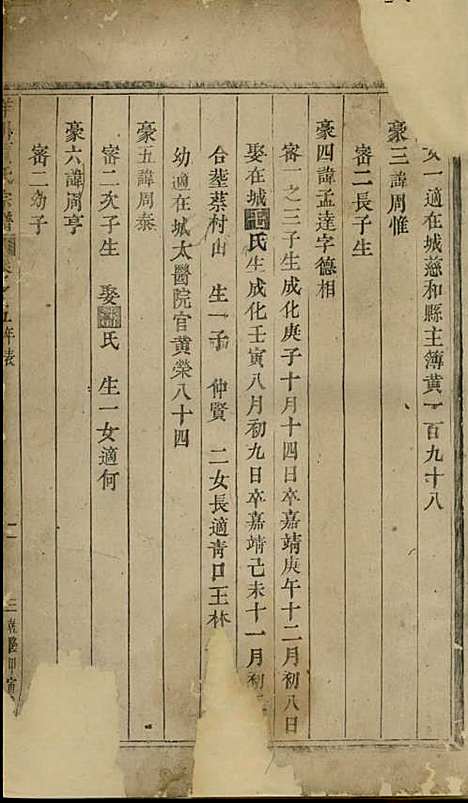 女一適在城慈和縣主簿黃一百九十八
豪三諱周惟
審二長子生
豪四諱孟達字德相
審一之三子生成化庚子十月十四日卒嘉靖庚午十二月初八日
娶在城氏生成化壬寅八月初九日卒嘉靖己未十一月初
合塟蔡村山 生一子 仲賢 二女長適靑口王林
幼適在城太醫院官黃榮八十四
豪五諱周泰
審二次子生 娶氏 生一女適何
豪六諱周亨
審二幼子
氏宗譜 五年表